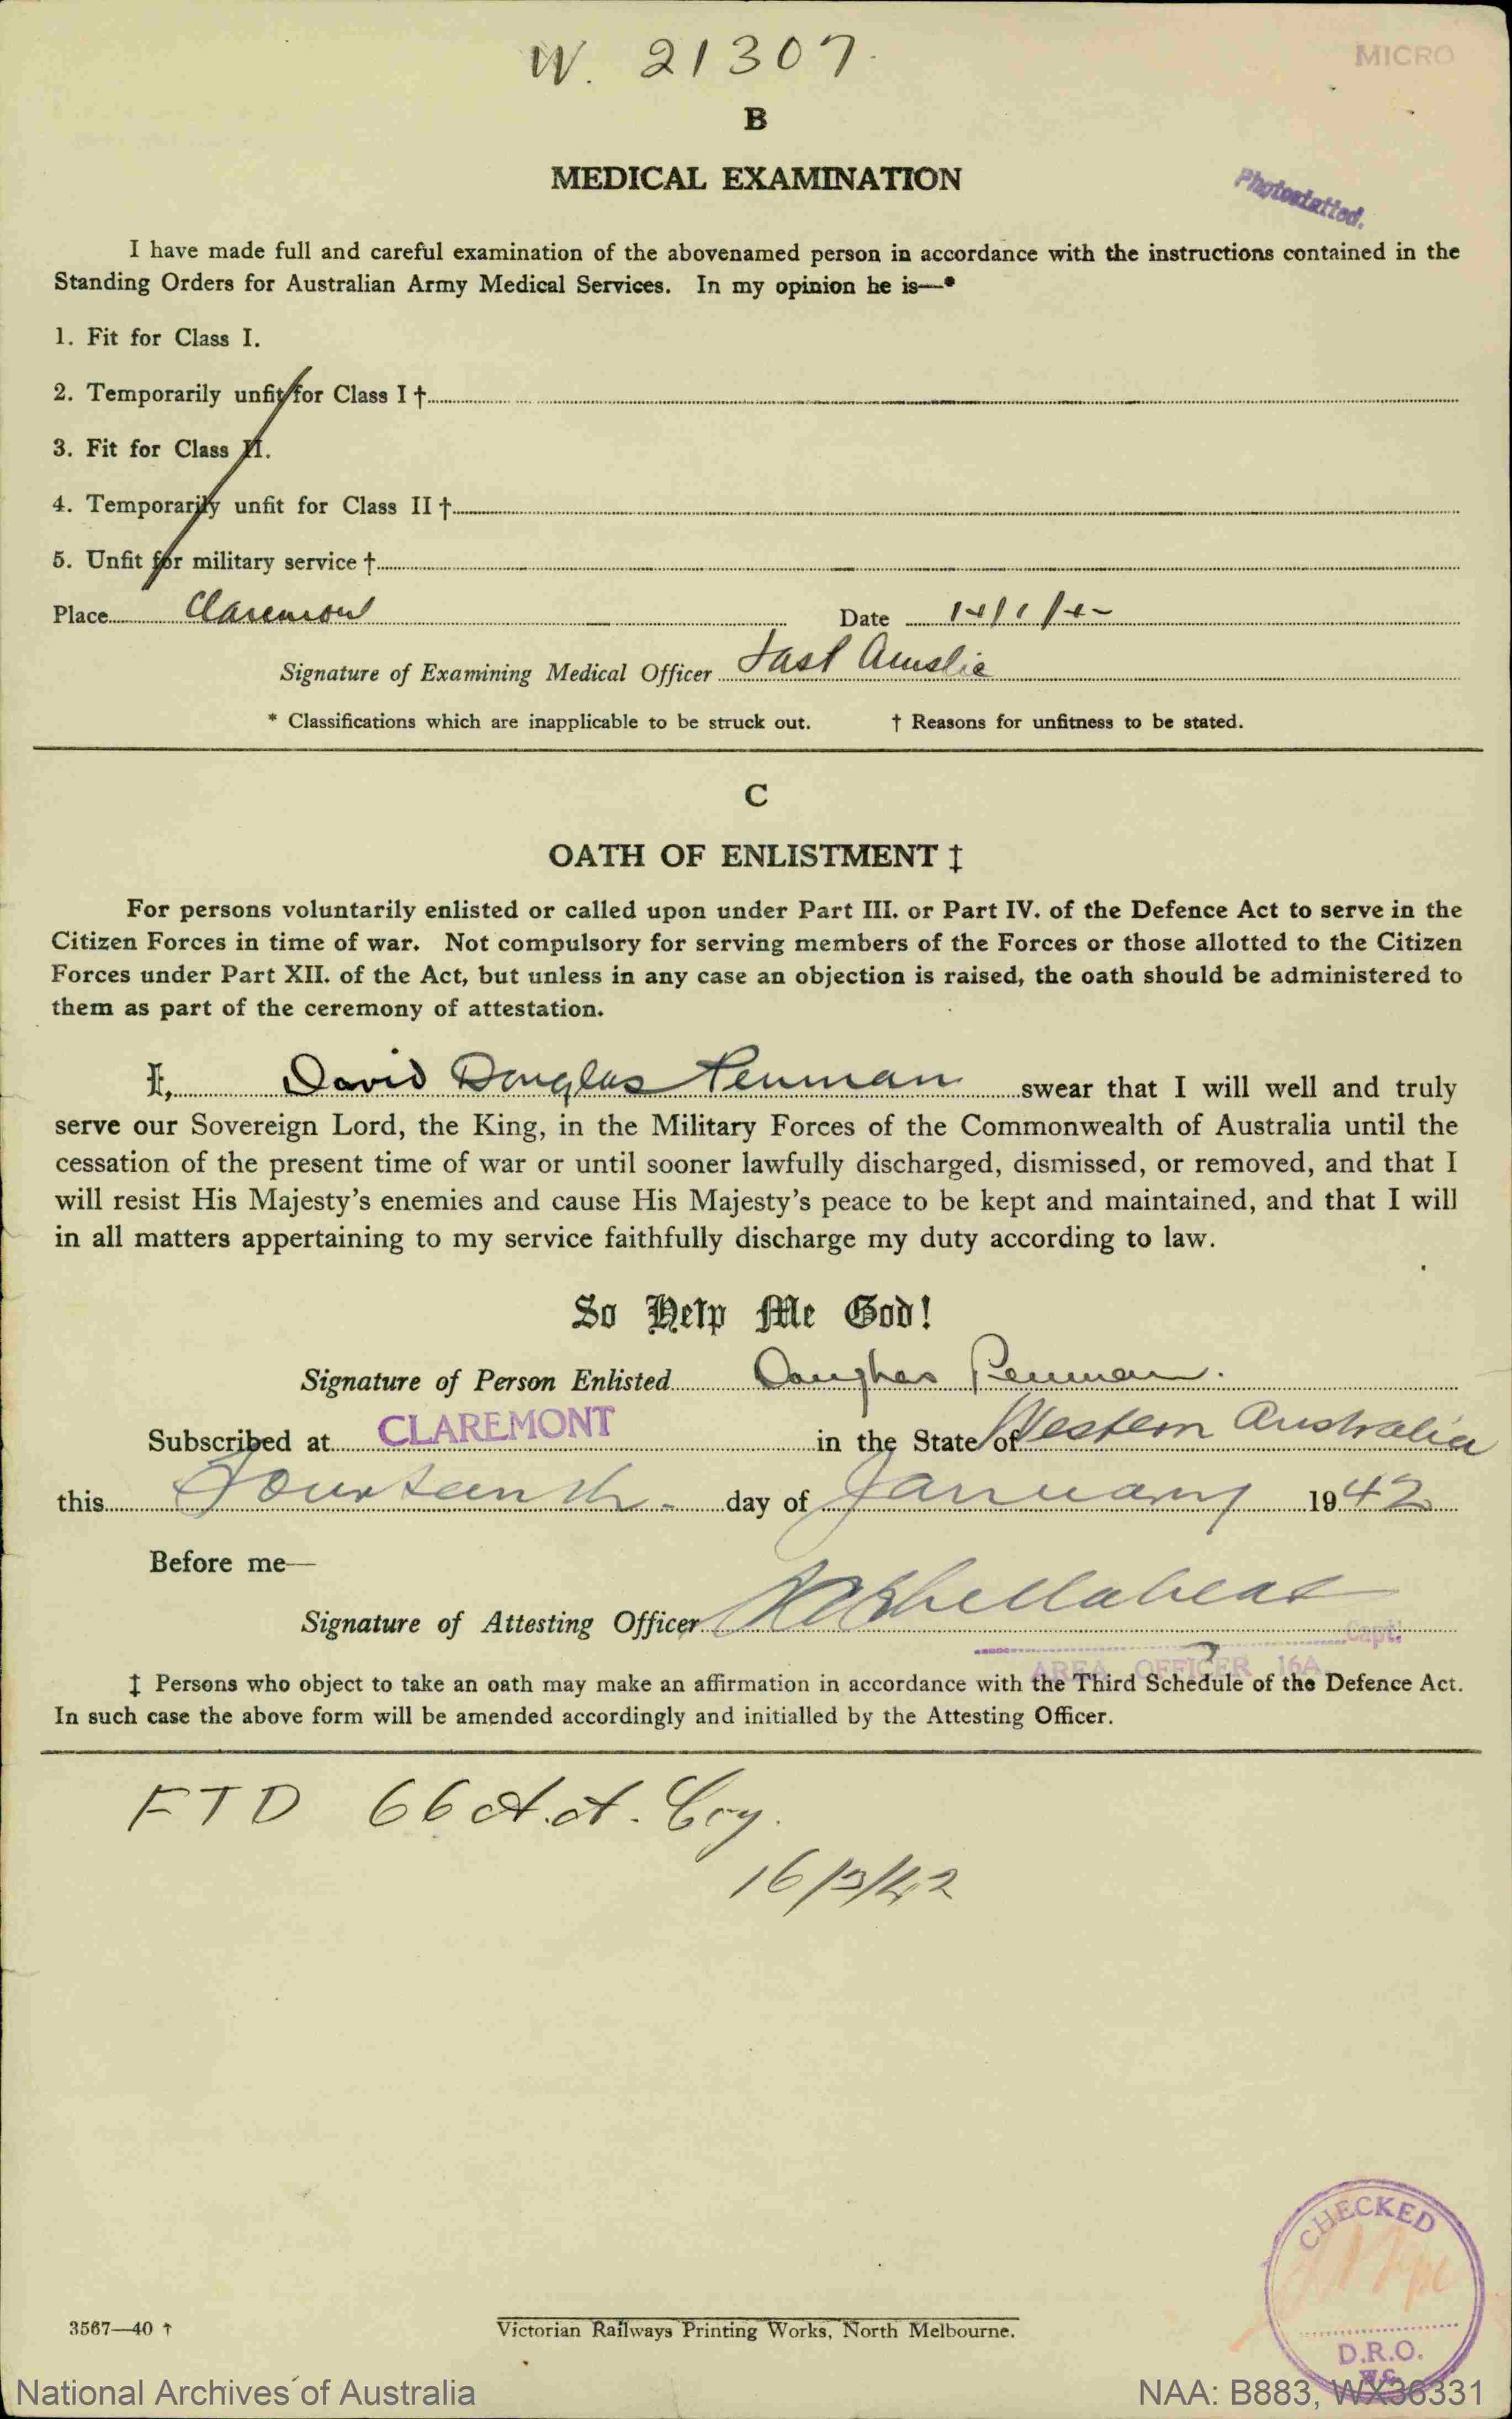 W. 21307.
MICRO
B
MEDICAL EXAMINATION
Photostatted.
I have made full and careful examination of the abovenamed person in accordance with the instructions contained in the
Standing Orders for Australian Army Medical Services. In my opinion he is—*
1. Fit for Class I.
2. Temporarily unfit for Class I †
3. Fit for Class II.
4. Temporarily unfit for Class II †
5. Unfit for military service †
Place Claremont Date 14/1/42
Signature of Examining Medical Officer Ainslie
* Classifications which are inapplicable to be struck out. † Reasons for unfitness to be stated.
C
OATH OF ENLISTMENT ‡
For persons voluntarily enlisted or called upon under Part III. or Part IV. of the Defence Act to serve in the
Citizen Forces in time of war. Not compulsory for serving members of the Forces or those allotted to the Citizen
Forces under Part XII. of the Act, but unless in any case an objection is raised, the oath should be administered to
them as part of the ceremony of attestation.
I, David Douglas Penman swear that I will well and truly
serve our Sovereign Lord, the King, in the Military Forces of the Commonwealth of Australia until the
cessation of the present time of war or until sooner lawfully discharged, dismissed, or removed, and that I
will resist His Majesty's enemies and cause His Majesty's peace to be kept and maintained, and that I will
in all matters appertaining to my service faithfully discharge my duty according to law.
So Help Me God!
Signature of Person Enlisted Douglas Penman.
Subscribed at CLAREMONT in the State of Western Australia
this Fourteenth day of January 1942
Before me—
Signature of Attesting Officer
Capt.
AREA OFFICER 16A
‡ Persons who object to take an oath may make an affirmation in accordance with the Third Schedule of the Defence Act.
In such case the above form will be amended accordingly and initialled by the Attesting Officer.
FTD 66 A.A. Coy.
16/3/42
CHECKED
D.R.O.
3567—40
Victorian Railways Printing Works, North Melbourne.
National Archives of Australia
NAA: B883, WX36331